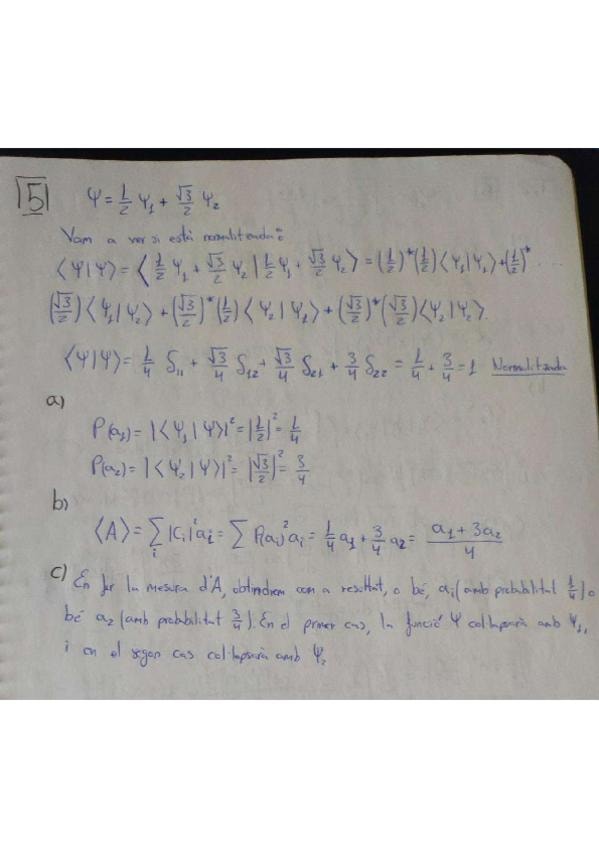 5
Ψ = 1/2 Ψ₁ + √3/2 Ψ₂
Vam a ver si está normalitzada:
⟨Ψ|Ψ⟩ = ⟨1/2 Ψ₁ + √3/2 Ψ₂ | 1/2 Ψ₁ + √3/2 Ψ₂⟩ = (1/2)*(1/2)⟨Ψ₁|Ψ₁⟩ + (1/2)* ...
(√3/2)⟨Ψ₁|Ψ₂⟩ + (√3/2)*(1/2)⟨Ψ₂|Ψ₁⟩ + (√3/2)*(√3/2)⟨Ψ₂|Ψ₂⟩.
⟨Ψ|Ψ⟩ = 1/4 δ₁₁ + √3/4 δ₁₂ + √3/4 δ₂₁ + 3/4 δ₂₂ = 1/4 + 3/4 = 1 Normalitzada
a)
P(a₁) = |⟨Ψ₁|Ψ⟩|² = |1/2|² = 1/4
P(a₂) = |⟨Ψ₂|Ψ⟩|² = |√3/2|² = 3/4
b)
⟨A⟩ = ∑ᵢ |Cᵢ|² aᵢ = ∑ P(aᵢ)² aᵢ = 1/4 a₁ + 3/4 a₂ = (a₁ + 3a₂)/4
c) En fer la mesura d'A, obtindrem com a resultat, o bé, a₁ (amb probabilitat 1/4) o
bé a₂ (amb probabilitat 3/4). En el primer cas, la funció Ψ col·lapsarà amb Ψ₁,
i en el segon cas col·lapsarà amb Ψ₂